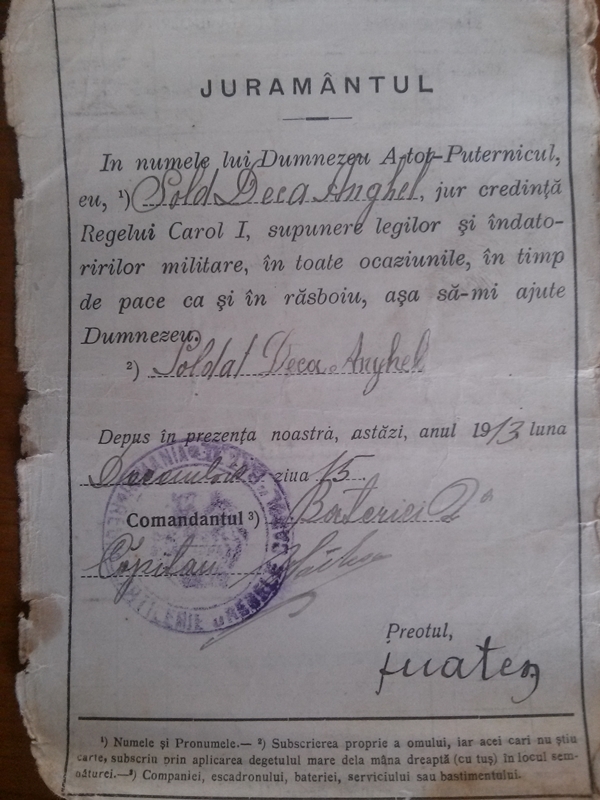 JURAMÂNTUL
In numele lui Dumnezeu A-tot-Puternicul,
eu, ¹) Sold Deca Anghel, jur credință
Regelui Carol I, supunere legilor și îndato-
ririlor militare, în toate ocaziunile, în timp
de pace ca și în răsboiu, așa să-mi ajute
Dumnezeu.
²) Soldat Deca Anghel
Depus în prezența noastră, astăzi, anul 1913 luna
Decembrie ziua 15
Comandantul ³) Bateriei 2a
Capitan
ARTILERIE
Preotul,
¹) Numele și Pronumele.— ²) Subscrierea proprie a omului, iar acei cari nu știu
carte, subscriu prin aplicarea degetului mare dela mâna dreaptă (cu tuș) în locul sem-
năturei.—³) Companiei, escadronului, bateriei, serviciului sau bastimentului.